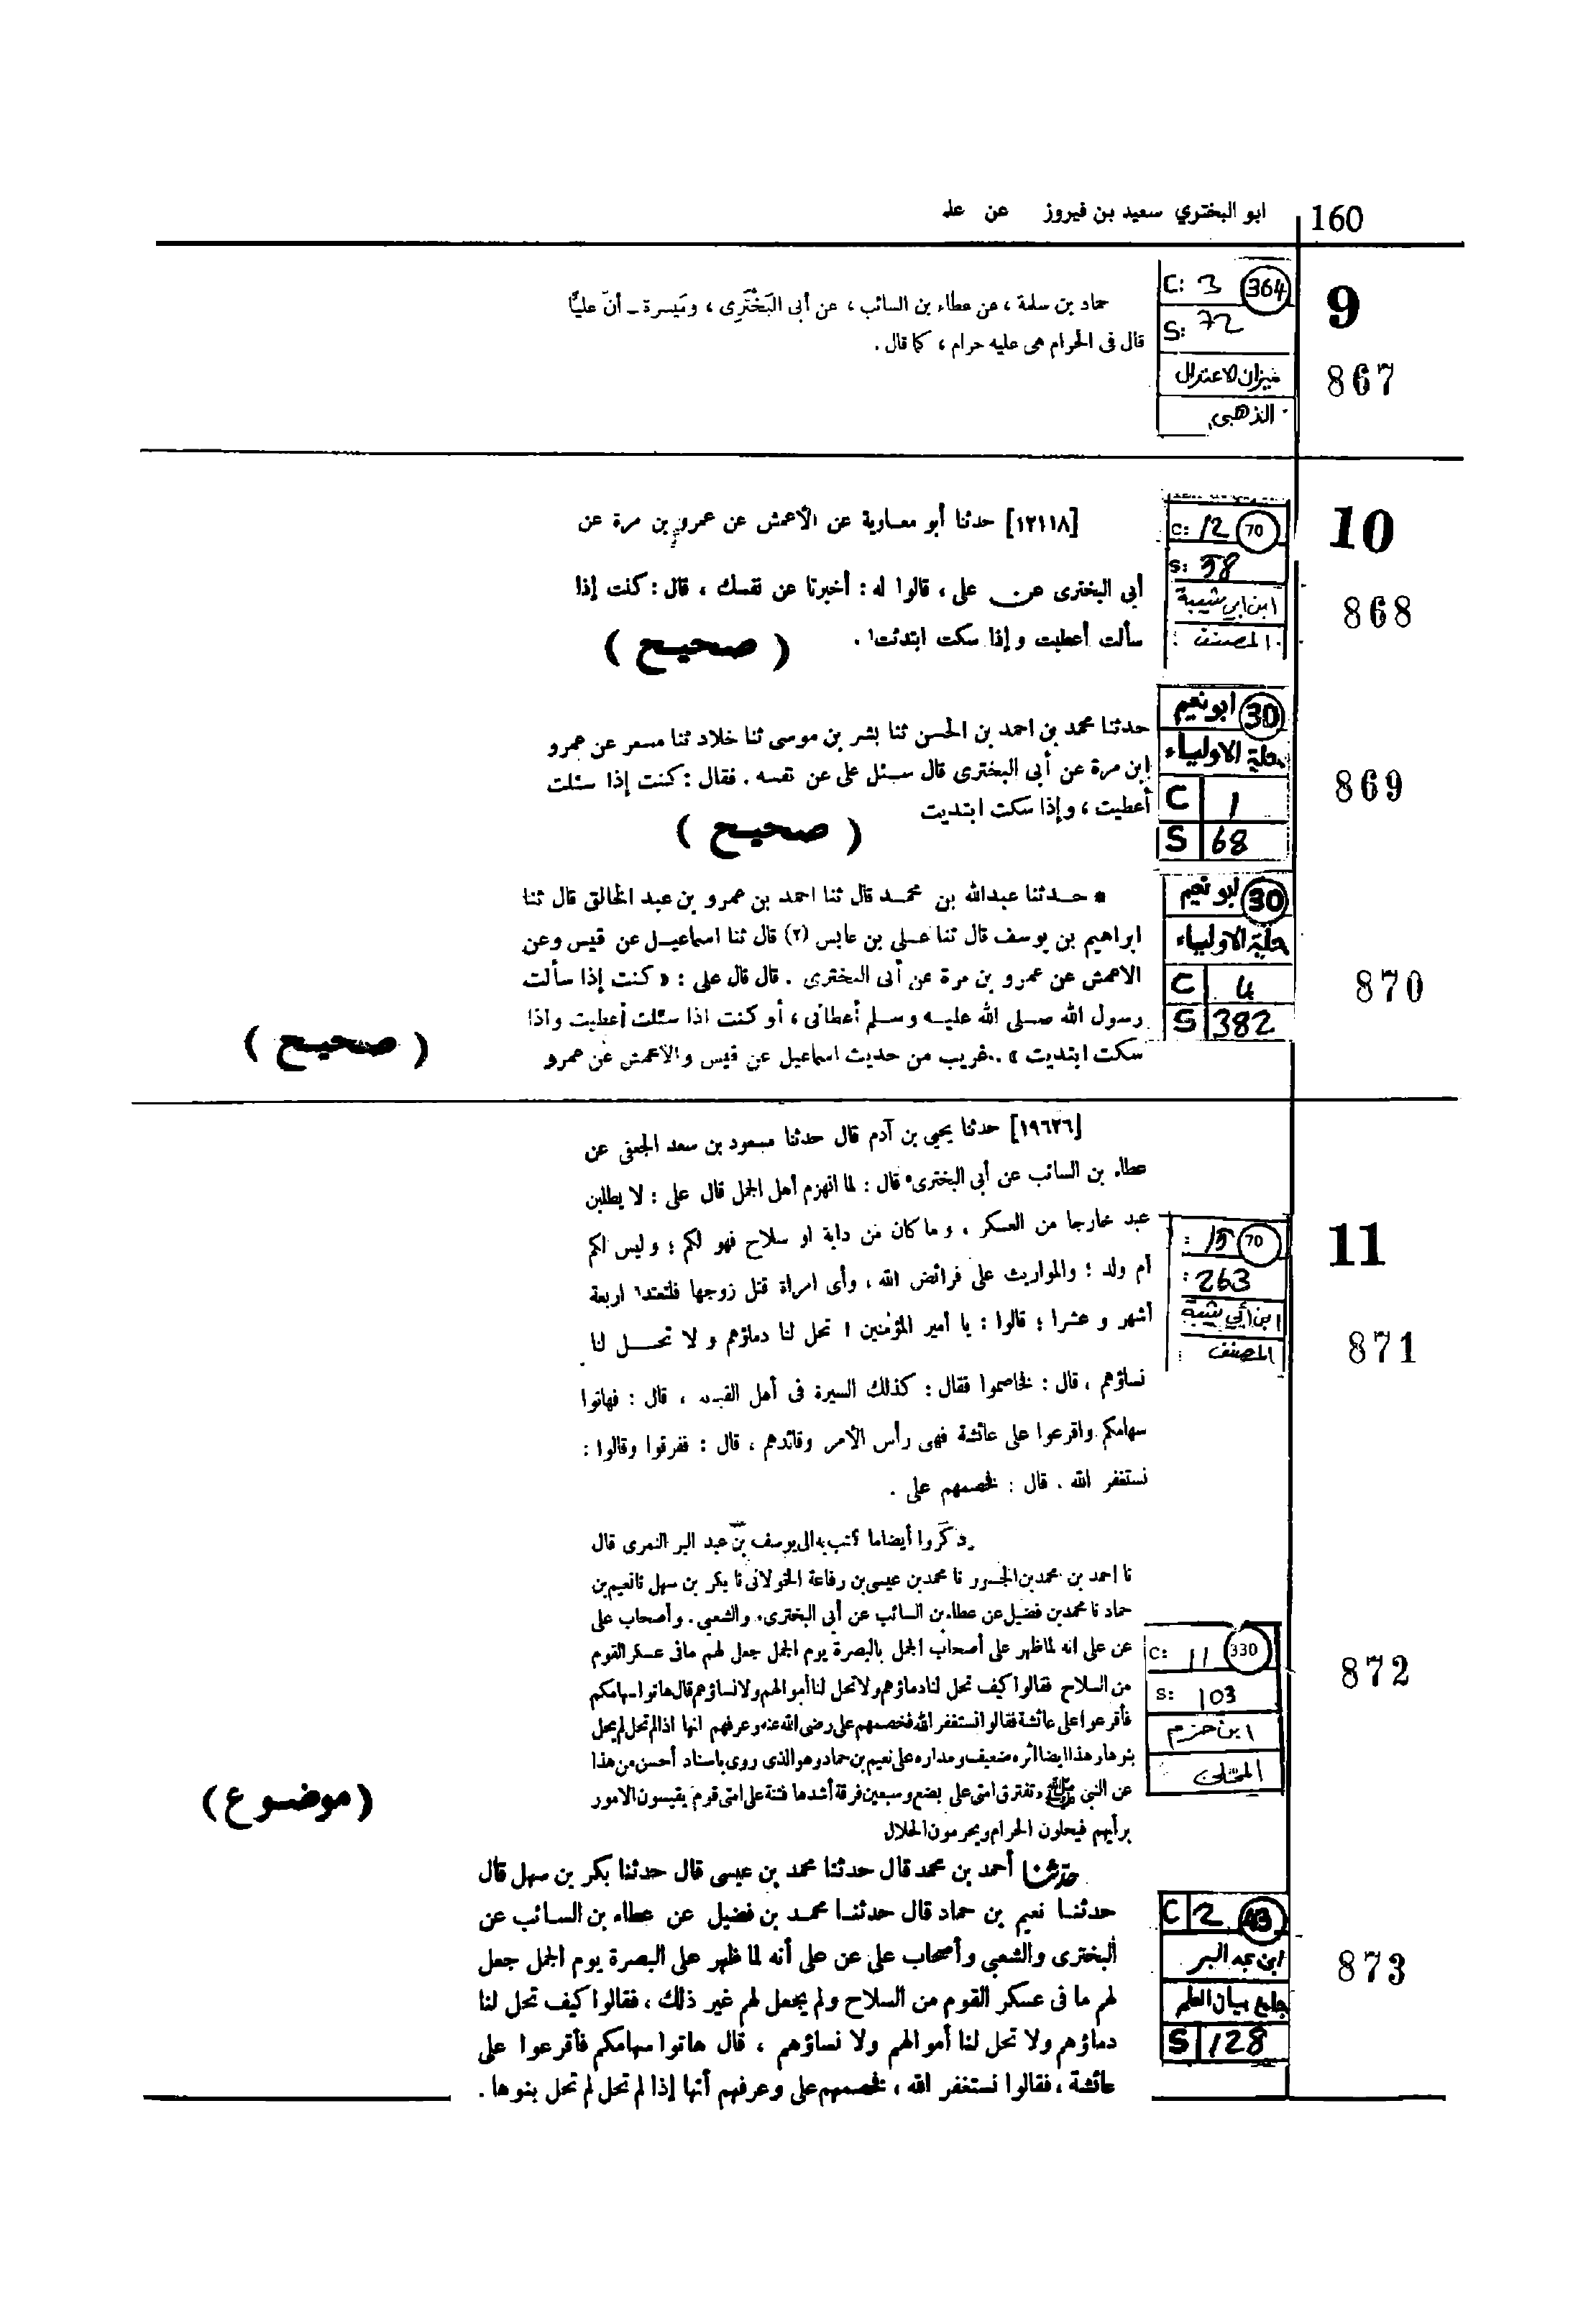 160
ابو البختري سعيد بن فيروز عن علي
9
867
C: 3 364
S: 72
ميزان الاعتدال
الذهبي
حماد بن سلمة ، عن عطاء بن السائب ، عن أبى البَخْتَرِى ، ومَيسرة ــ أنّ عليًّا
قال فى الحرام هى عليه حرام ، كما قال .
10
868
C: 12 70
S: 58
ابن ابي شيبة
المصنف :
[١٢١١٨] حدثنا أبو معاوية عن الأعمش عن عمرو بن مرة عن
أبى البخترى عن على ، قالوا له : أخبرنا عن نفسك ، قال : كنت إذا
سألت أعطيت وإذا سكت ابتدئت١ .
( صحيح )
869
ابو نعيم 30
حلية الاولياء
C 1
S 68
حدثنا محمد بن احمد بن الحسن ثنا بشر بن موسى ثنا خلاد ثنا مسعر عن عمرو
ابن مرة عن أبى البخترى قال سئل على عن نفسه . فقال : كنت إذا سئلت
أعطيت ، وإذا سكت ابتديت
( صحيح )
870
ابو نعيم 30
حلية الاولياء
C 4
S 382
* حدثنا عبدالله بن محمد قال ثنا احمد بن عمرو بن عبد الخالق قال ثنا
ابراهيم بن يوسف قال ثنا على بن عابس (٢) قال ثنا اسماعيل عن قيس وعن
الاعمش عن عمرو بن مرة عن أبى البخترى . قال قال على : « كنت إذا سألت
رسول الله صلى الله عليه وسلم أعطانى ، أو كنت اذا سئلت أعطيت واذا
سكت ابتديت » . غريب من حديث اسماعيل عن قيس والاعمش عن عمرو
( صحيح )
11
871
: 15 70
: 263
ابن أبي شيبة
المصنف :
[١٩٦٢٦] حدثنا يحيى بن آدم قال حدثنا مسعود بن سعد الجعفى عن
عطاء بن السائب عن أبى البخترى٥ قال : لما انهزم أهل الجمل قال على : لا يطلبن
عبد خارجا من العسكر ، وما كان من دابة او سلاح فهو لكم ؛ وليس لكم
أم ولد ؛ والمواريث على فرائض الله ، وأى امراة قتل زوجها فلتعتد٦ اربعة
أشهر و عشرا ؛ قالوا : يا أمير المؤمنين ! تحل لنا دماؤهم و لا تحل لنا
نساؤهم ، قال : فخاصموا فقال : كذلك السيرة فى أهل القبلة ، قال : فهاتوا
سهامكم واقرعوا على عائشة فهى رأس الأمر وقائدهم ، قال : ففرقوا وقالوا :
نستغفر الله ، قال : فخصمهم على .
872
C: 11 330
S: 103
ابن حزم
المحلى
وذكروا أيضا ما كتب به الى يوسف بن عبد البر النمرى قال
نا احمد بن محمد بن الجسور نا محمد بن عيسى بن رفاعة الخولانى نا بكر بن سهل نا نعيم بن
حماد نا محمد بن فضيل عن عطاء بن السائب عن أبى البخترى . والشعبى . وأصحاب على
عن على انه لما ظهر على أصحاب الجمل بالبصرة يوم الجمل جعل لهم مافى عسكر القوم
من السلاح فقالوا كيف تحل لنا دماؤهم ولا تحل لنا أموالهم ولا نساؤهم قال هاتوا سهامكم
فأقرعوا على عائشة فقالوا نستغفر الله فخصمهم على رضى الله عنه وعرفهم انها اذا لم تحل لم يحل
بنوها وهذا ايضا اثره ضعيف ومداره على نعيم بن حماد وهو الذى روى باسناد أحسن من هذا
عن النبى ﷺ « تفترق امتى على بضع وسبعين فرقة أشدها فتنة على امتى قوم يقيسون الامور
برأيهم فيحلون الحرام ويحرمون الحلال
(موضوع)
873
C 2 43
ابن عبد البر
جامع بيان العلم
S 128
حدّثنا أحمد بن محمد قال حدثنا محمد بن عيسى قال حدثنا بكر بن سهل قال
حدثنا نعيم بن حماد قال حدثنا محمد بن فضيل عن عطاء بن السائب عن
البخترى والشعبي وأصحاب على عن على أنه لما ظهر على البصرة يوم الجمل جعل
لهم ما فى عسكر القوم من السلاح ولم يجعل لهم غير ذلك ، فقالوا كيف تحل لنا
دماؤهم ولا تحل لنا أموالهم ولا نساؤهم ، قال هاتوا سهامكم فأقرعوا على
عائشة ، فقالوا نستغفر الله ، فخصمهم على وعرفهم أنها إذا لم تحل لم تحل بنوها .